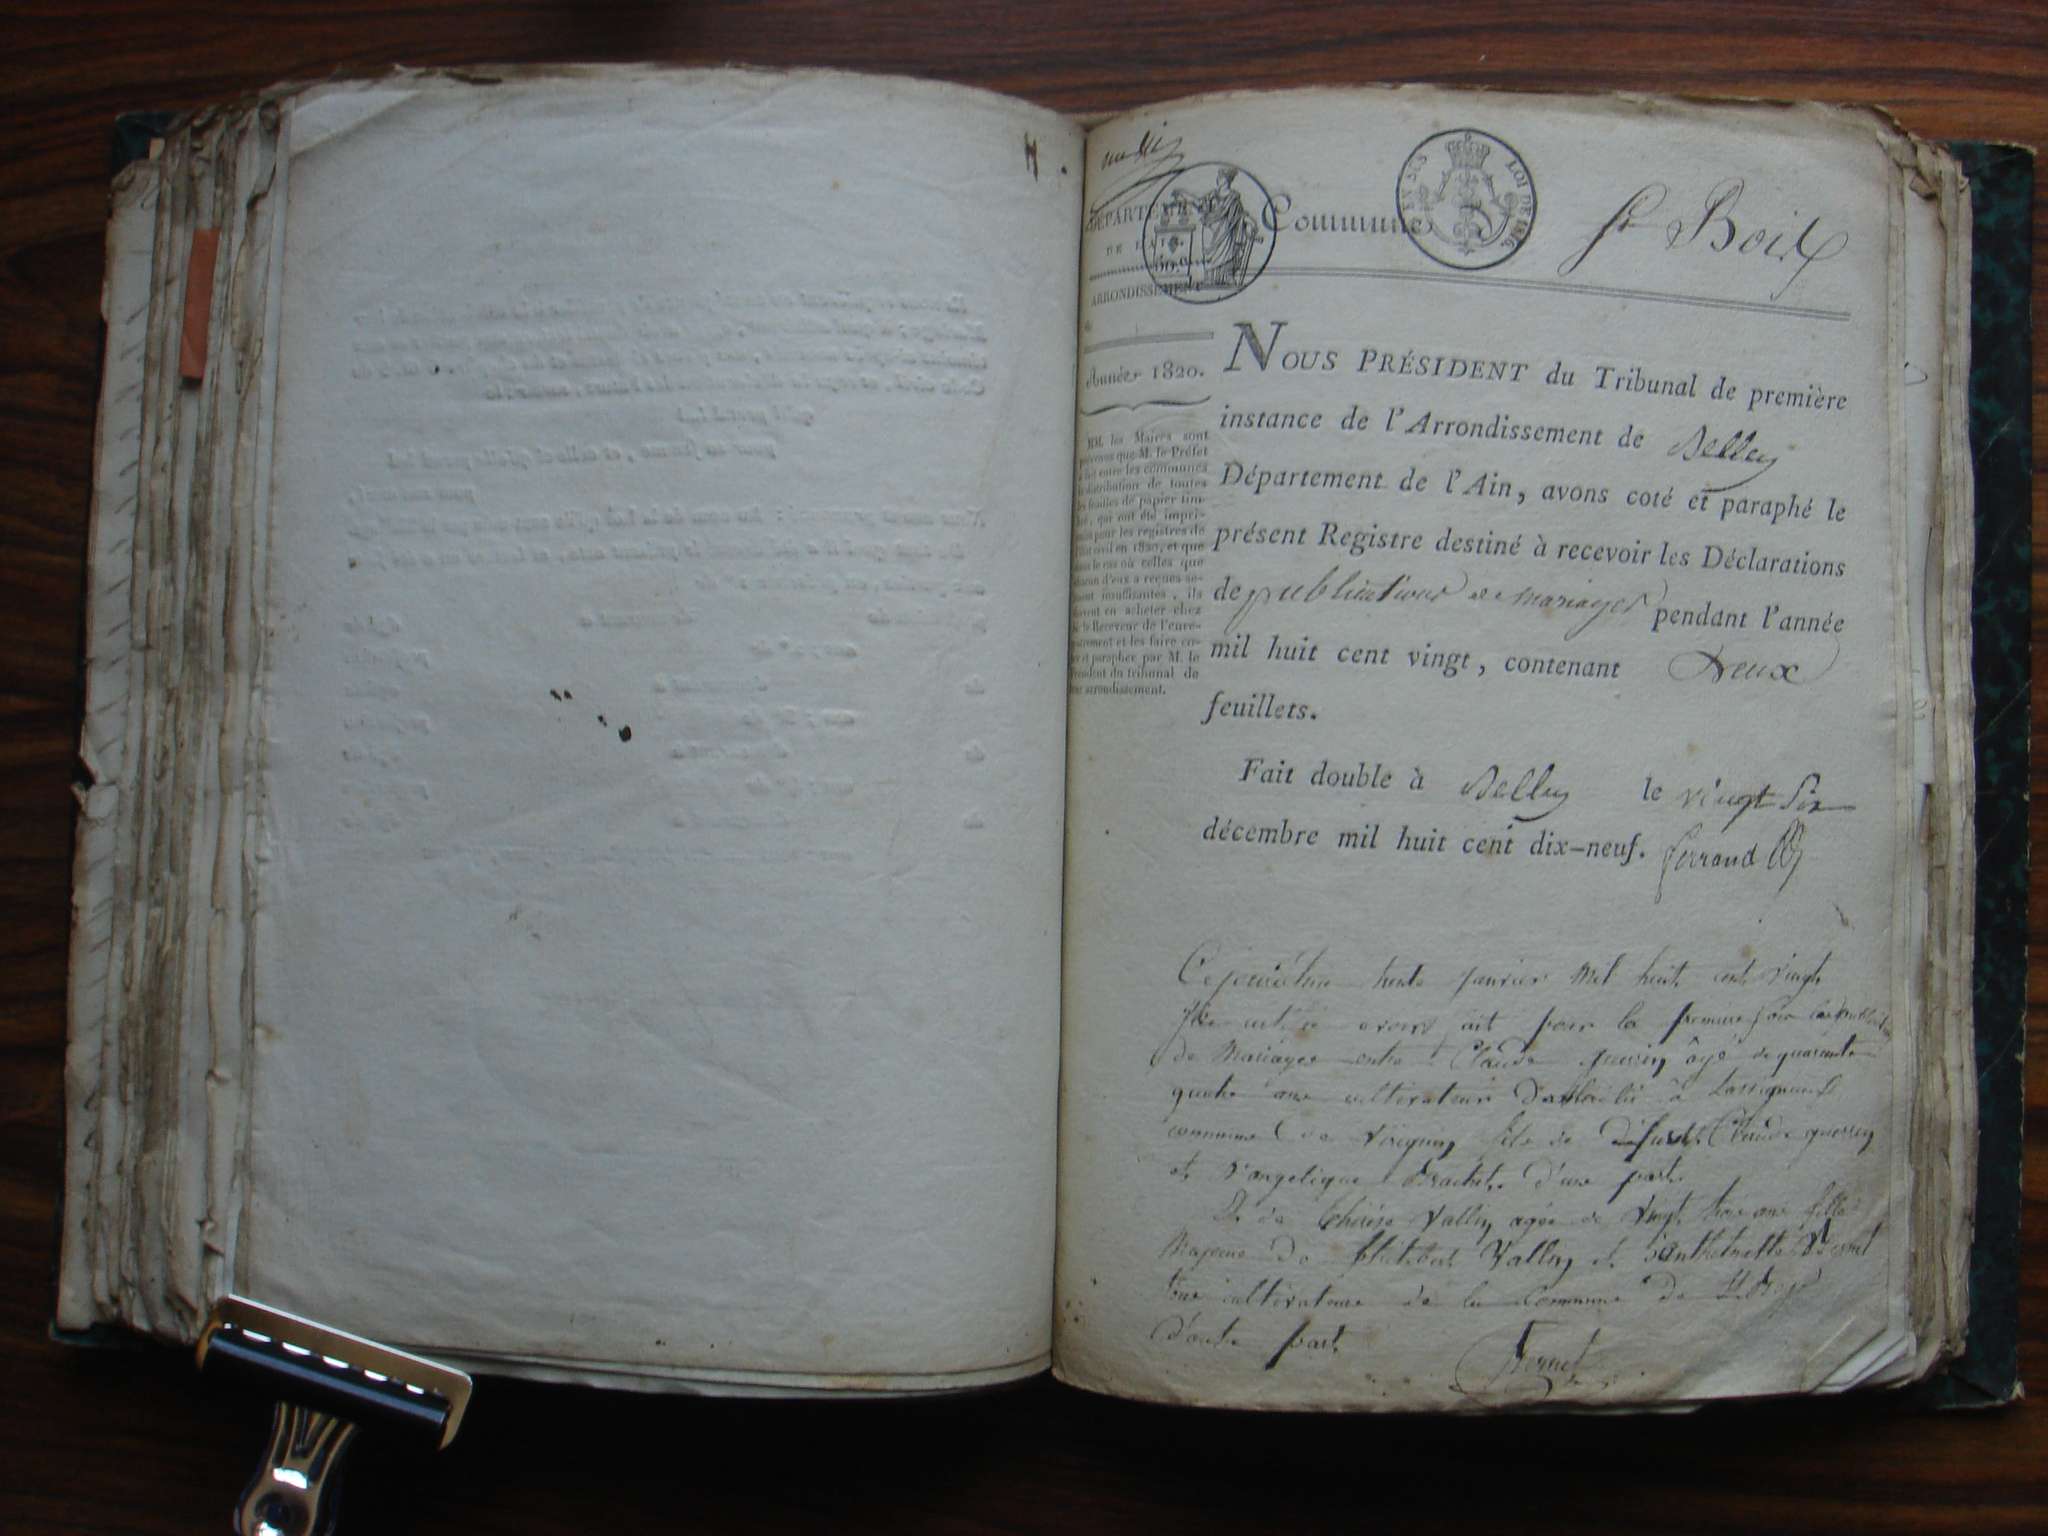 DÉPARTEMENT
DE L'AIN.
ARRONDISSEMENT
Commune
LOI DE 1816.
St Bois
Année 1820.
MM. les Maires sont
prévenus que M. le Préfet
a fait entre les communes
la distribution de toutes
les feuilles de papier tim-
bré, qui ont été impri-
mées pour les registres de
l'état civil en 1820, et que
dans le cas où celles que
chacun d'eux a reçues se-
roient insuffisantes, ils
doivent en acheter chez
le Receveur de l'enre-
gistrement et les faire co-
ter et parapher par M. le
Président du tribunal de
leur arrondissement.
NOUS PRÉSIDENT du Tribunal de première
instance de l'Arrondissement de Belley
Département de l'Ain, avons coté et paraphé le
présent Registre destiné à recevoir les Déclarations
de publications de mariages pendant l'année
mil huit cent vingt, contenant Deux
feuillets.
Fait double à Belley le vingt six
décembre mil huit cent dix-neuf. Ferrand
Cejourdhui trente janvier mil huit cent vingt
avons fait pour la premiere fois la publication
de Mariage entre Claude guerin âgé de quarante
quatre ans cultivateur Domicilié à
commune de Virignin fils de Défunt Claude guerin
et d'angelique d'une part
Et de Thérése Vallin agée de vingt trois ans fille
Majeure de Philibert Vallin et d'anthelmette
tous cultivateurs de la Commune de St Bois
d'autre part